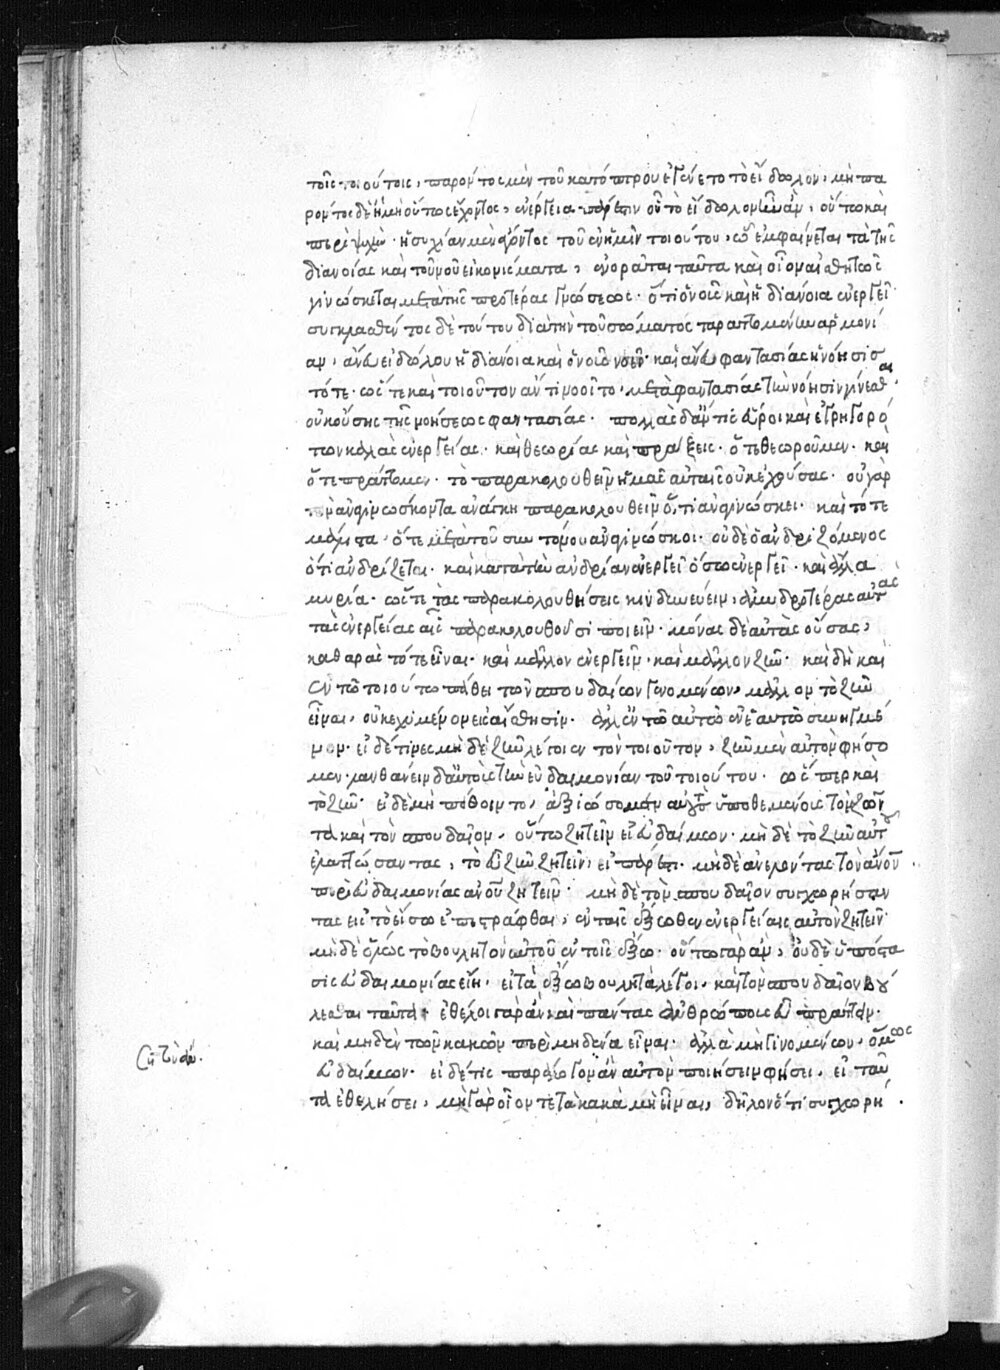 τοῖς τοιούτοις, παρόντος μὲν τοῦ κατόπτρου ἐγένετο τὸ εἴδωλον, μὴ πα
ρόντος δὲ ἢ μὴ οὕτως ἔχοντος, ἐνεργεία πάρεστιν οὗ τὸ εἴδωλον ἦν ἄν, οὕτω καὶ
περὶ ψυχὴν ἡσυχίαν μὲν ἄγοντος τοῦ ἐν ἡμῖν τοιούτου, ᾧ ἐμφαίνεται τὰ τῆς
διανοίας καὶ τοῦ νοῦ εἰκονίσματα, ἐνορᾶται ταῦτα καὶ οἷον αἰσθητῶς
γινώσκεται μετὰ τῆς προτέρας γνώσεως· ὅτι ὁ νοῦς καὶ ἡ διάνοια ἐνεργεῖ·
συγκλασθέντος δὲ τούτου διὰ τὴν τοῦ σώματος ταραττομένην ἁρμονί
αν, ἄνευ εἰδώλου ἡ διάνοια καὶ ὁ νοῦς νοεῖ· καὶ ἄνευ φαντασίας ἡ νόησις
τότε· ὥστε καὶ τοιοῦτον ἄν τι νοοῖτο, μετὰ φαντασίας τὴν νόησιν γίνεσθαι
οὐκ οὔσης τῆς νοήσεως φαντασίας· πολλὰς δ' ἄν τις εὕροι καὶ ἐγρηγορό
των καλὰς ἐνεργείας· καὶ θεωρίας καὶ πράξεις· ὅτε θεωροῦμεν· καὶ
ὅτε πράττομεν· τὸ παρακολουθεῖν ἡμᾶς αὐταῖς οὐκ ἐχούσας· οὐ γὰρ
τὸν ἀναγινώσκοντα ἀνάγκη παρακολουθεῖν ὅτι ἀναγινώσκει· καὶ τότε
μάλιστα, ὅτε μετὰ τοῦ συντόνου ἀναγινώσκοι· οὐδὲ ὁ ἀνδριζόμενος
ὅτι ἀνδρίζεται· καὶ κατὰ τὴν ἀνδρίαν ἐνεργεῖ ὅσῳ ἐνεργεῖ· καὶ ἄλλα
μυρία· ὥστε τὰς παρακολουθήσεις κινδυνεύειν, ἀμυδροτέρας αὐτὰς
τὰς ἐνεργείας αἷς παρακολουθοῦσι ποιεῖν· μόνας δὲ αὐτὰς οὔσας,
καθαρὰς τότε εἶναι· καὶ μᾶλλον ἐνεργεῖν· καὶ μᾶλλον ζῆν· καὶ δὴ καὶ
ἐν τῷ τοιούτῳ πάθει τῶν σπουδαίων γενομένων, μᾶλλον τὸ ζῆν
εἶναι, οὐ κεχυμένον εἰς αἴσθησιν· ἀλλ' ἐν τῷ αὐτῷ ἐν ἑαυτῷ συνηγμέ
νον· εἰ δέ τινες μηδὲ ζῆν λέγοιεν τὸν τοιοῦτον, ζῆν μὲν αὐτὸν φήσο
μεν· λανθάνειν δ' αὐτοὺς τὴν εὐδαιμονίαν τοῦ τοιούτου· ὥσπερ καὶ
τὸ ζῆν· εἰ δὲ μὴ πείθοιντο, ἀξιώσομεν αὐτοὺς ὑποθεμένοις τὸν ζῶν
τα καὶ τὸν σπουδαῖον, οὕτω ζητεῖν εἰ εὐδαίμων· μηδὲ τὸ ζῆν αὐτοῦ
ἐλαττώσαντας, τὸ εὖ ζῆν ζητεῖν, εἰ πάρεστι· μηδὲ ἀνελόντας τὸν ἄνον
περὶ εὐδαιμονίας ἀνου ζητεῖν· μηδὲ τὸν σπουδαῖον συγχωρήσαν
τας εἰς τὸ εἴσω ἐπεστράφθαι, ἐν ταῖς ἔξωθεν ἐνεργείαις αὐτὸν ζητεῖν·
μηδὲ ὅλως τὸ βουλητὸν αὐτοῦ ἐν τοῖς ἔξω· οὕτω γὰρ ἄν, οὐδὲ ὑπόστα
σις εὐδαιμονίας εἴη, εἰ τὰ ἔξω βουλητὰ λέγοι, καὶ τὸν σπουδαῖον βού
λεσθαι ταῦτα· ἐθέλοι γὰρ ἂν καὶ πάντας ἀνθρώπους εὖ πράττειν·
καὶ μηδὲν τῶν κακῶν περὶ μηδένα εἶναι· ἀλλὰ μὴ γινομένων, ὅμως
εὐδαίμων· εἰ δέ τις παράλογον ἂν αὐτὸν ποιήσειν φήσει, εἰ ταῦ
τα ἐθελήσει, μὴ γὰρ οἷόν τε τὰ κακὰ μὴ εἶναι, δῆλον ὅτι συγχωρή